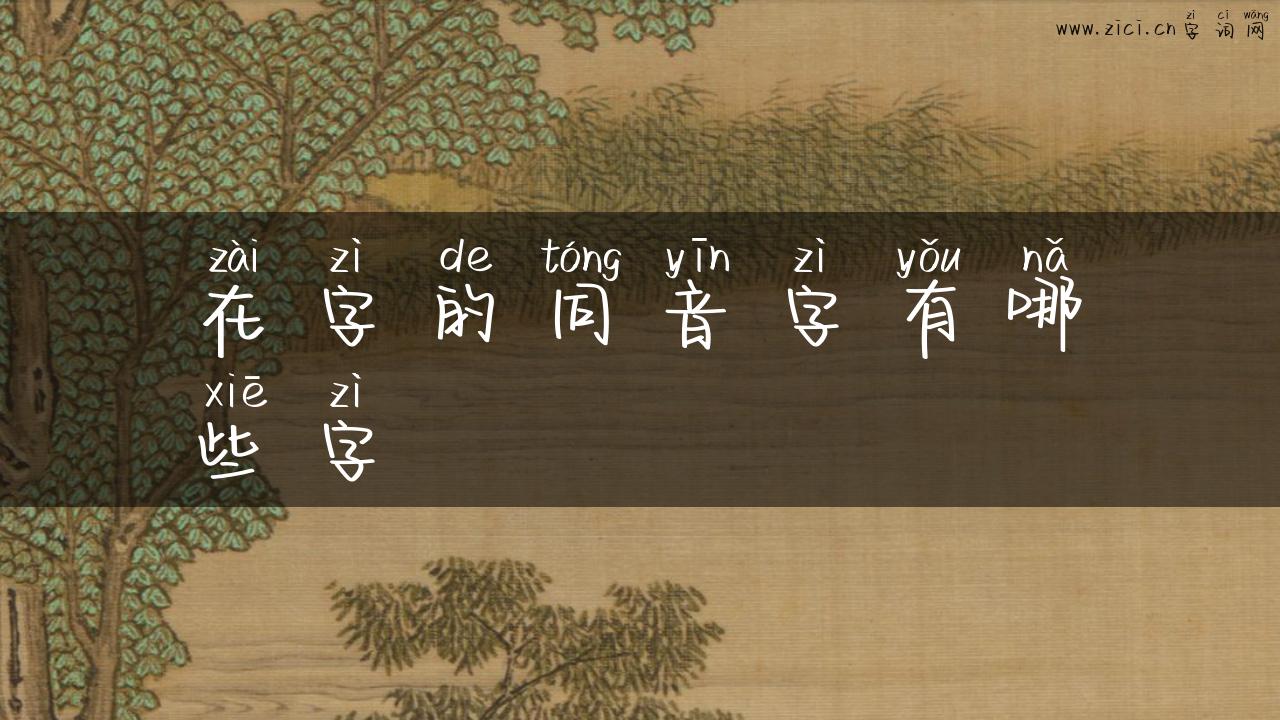 zì cí wǎng
www.zici.cn字词网
zài zì de tóng yīn zì yǒu nǎ
在字的同音字有哪
xiē zì
些字